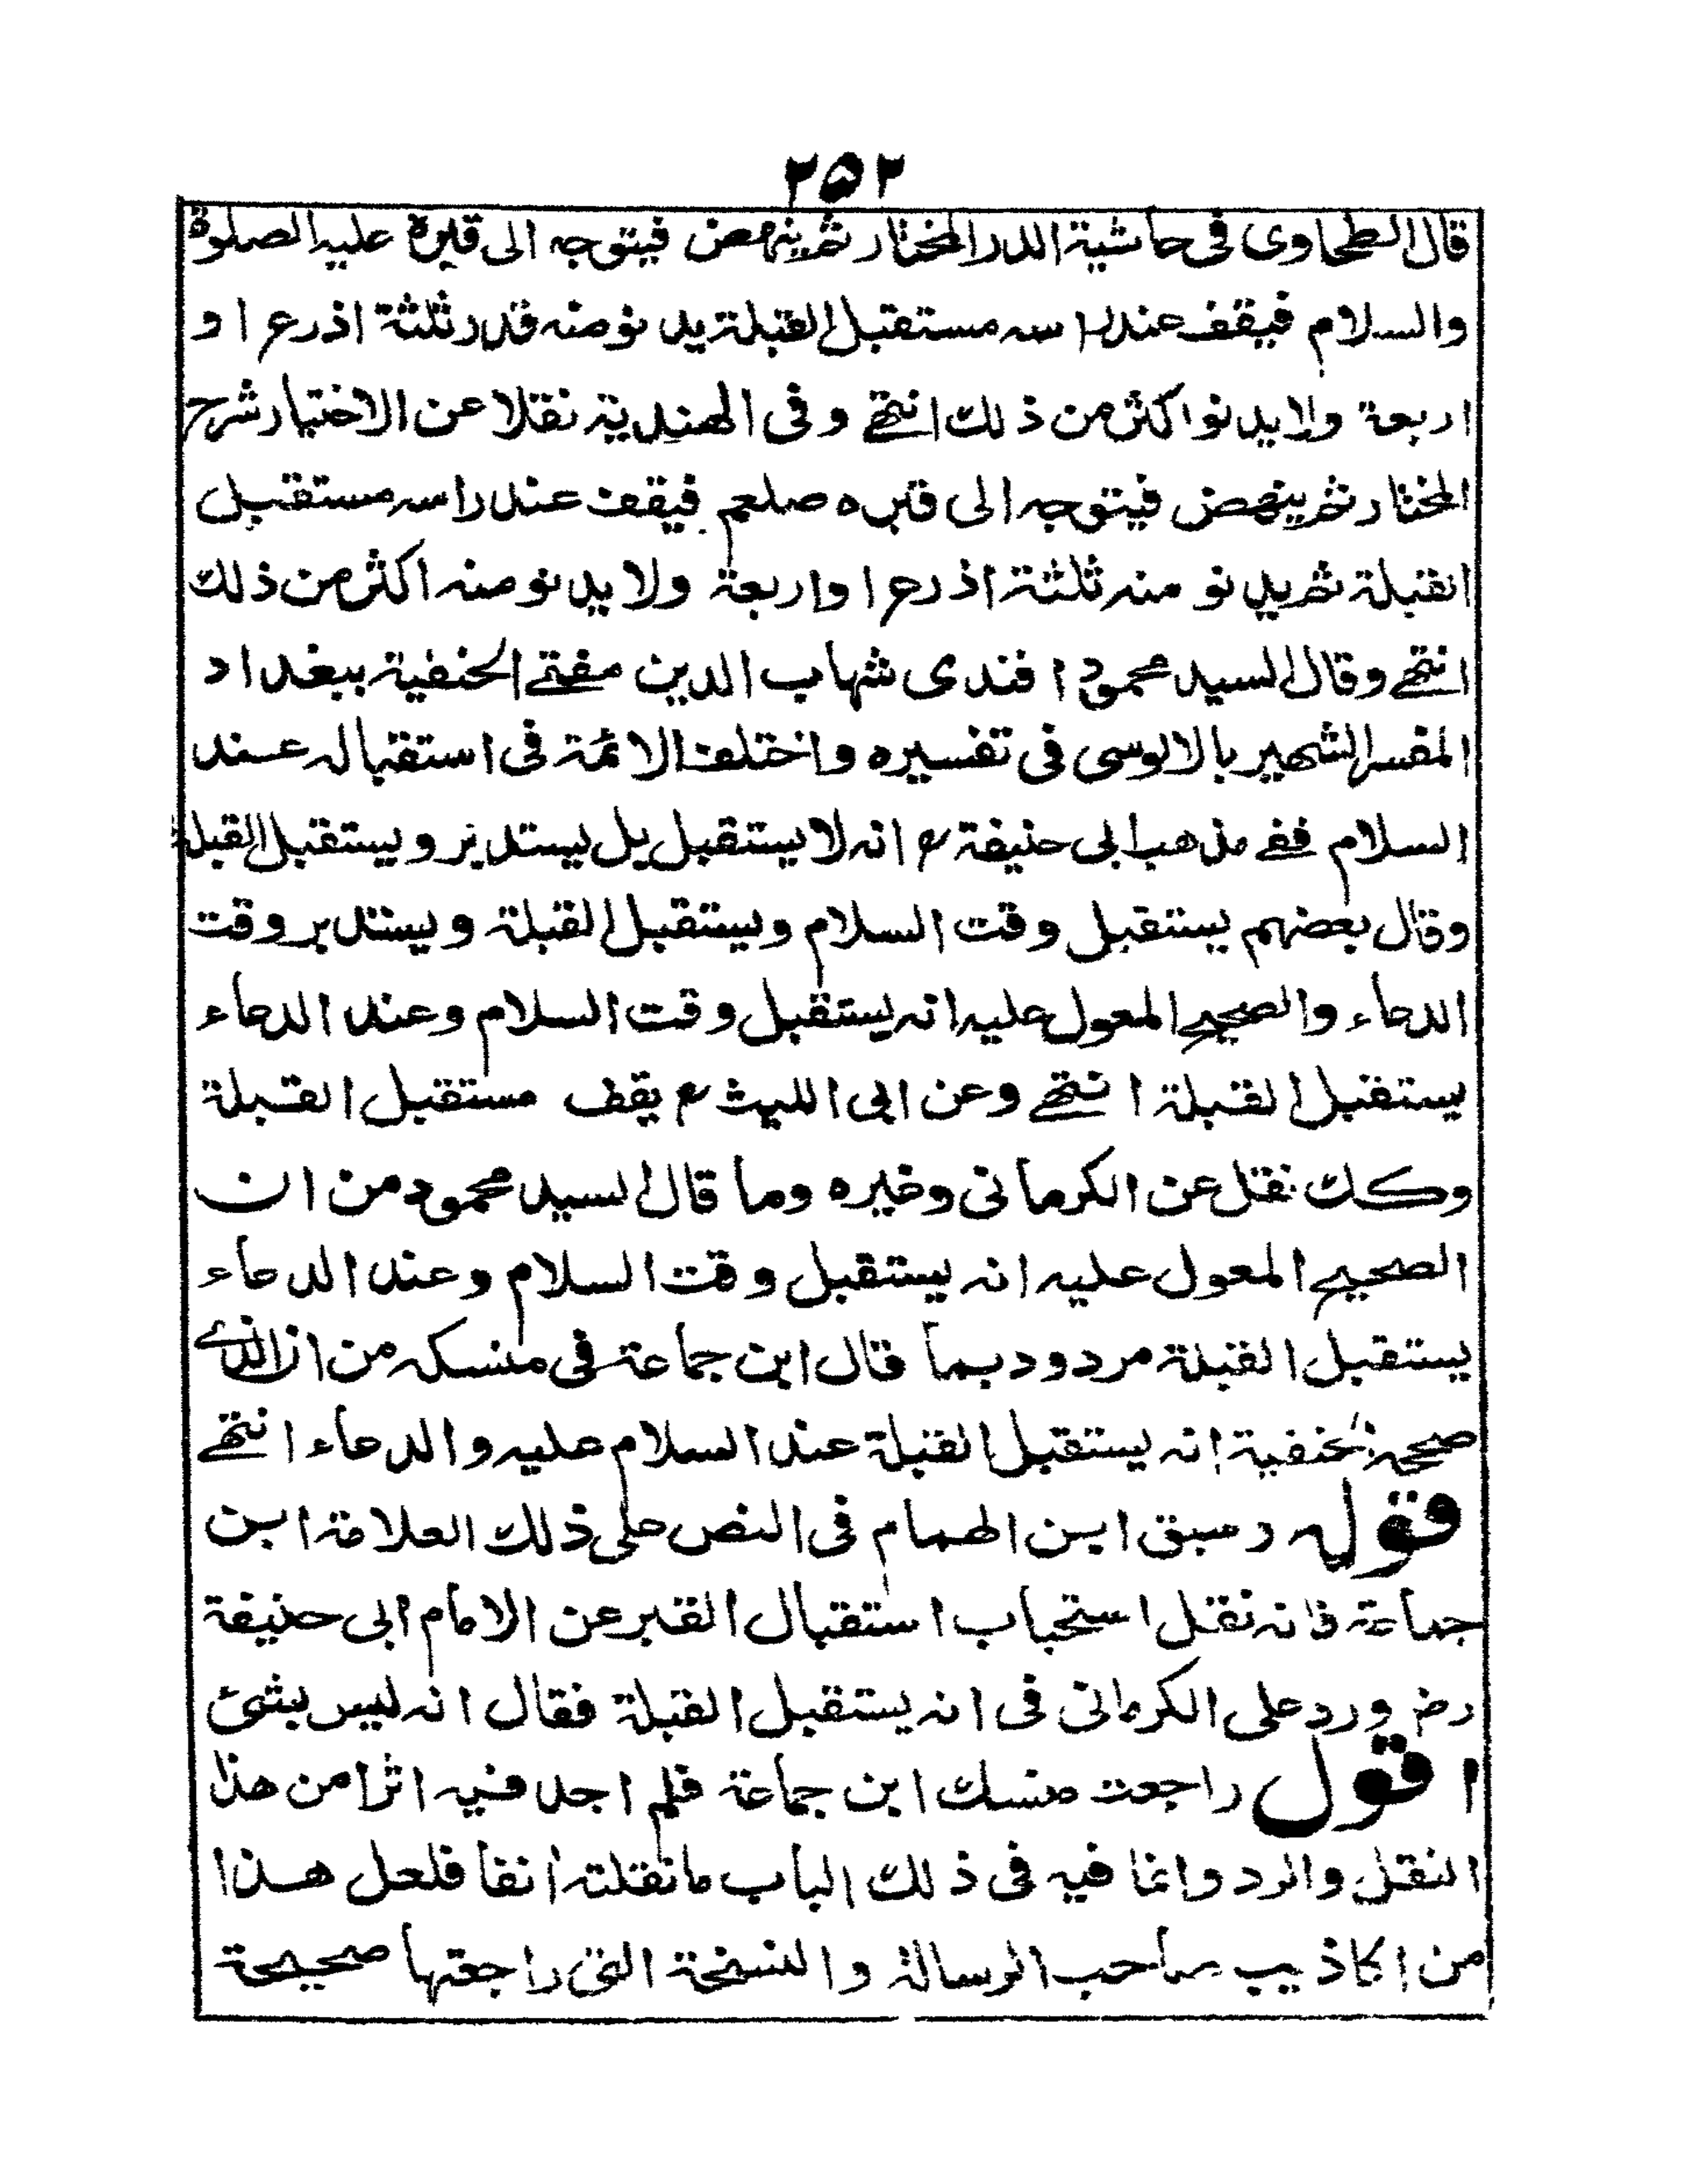 ٢٥٢
قال الطحاوى فى حاشية الدر المختار ثم ينهض فيتوجه الى قبره عليه الصلوة
والسلام فيقف عند راسه مستقبل القبلة يدنو منه قدر ثلثة اذرع او
اربعة ولا يدنو اكثر من ذلك انتهى وفى الهندية نقلا عن الاختيار شرح
المختار ثم ينهض فيتوجه الى قبره صلعم فيقف عند راسه مستقبل
القبلة ثم يدنو منه ثلثة اذرع او اربعة ولا يدنو منه اكثر من ذلك
انتهى وقال السيد محمود افندى شهاب الدين مفتى الحنفية ببغداد
المفسر الشهير بالالوسى فى تفسيره واختلف الائمة فى استقباله عند
السلام ففى مذهب ابى حنيفة رح انه لا يستقبل بل يستدير ويستقبل القبلة
وقال بعضهم يستقبل وقت السلام ويستقبل القبلة ويستدبر وقت
الدعاء والصحيح المعول عليه انه يستقبل وقت السلام وعند الدعاء
يستقبل القبلة انتهى وعن ابى الليث رح يقف مستقبل القبلة
وكك نقل عن الكرمانى وغيره وما قال السيد محمود من ان
الصحيح المعول عليه انه يستقبل وقت السلام وعند الدعاء
يستقبل القبلة مردود بما قال ابن جماعة فى منسكه من ان الذى
صححه الحنفية انه يستقبل القبلة عند السلام عليه والدعاء انتهى
قوله وسبق ابن الهمام فى النص على ذلك العلامة ابن
جماعة فانه نقل استحباب استقبال القبر عن الامام ابى حنيفة
رض ورد على الكرمانى فى انه يستقبل القبلة فقال انه ليس بشئ
اقول راجعت منسك ابن جماعة فلم اجد فيه اثرا من هذا
النقل والرد وانما فيه فى ذلك الباب ما نقلته انفا فلعل هذا
من اكاذيب صاحب الرسالة والنسخة التى راجعتها صحيحة